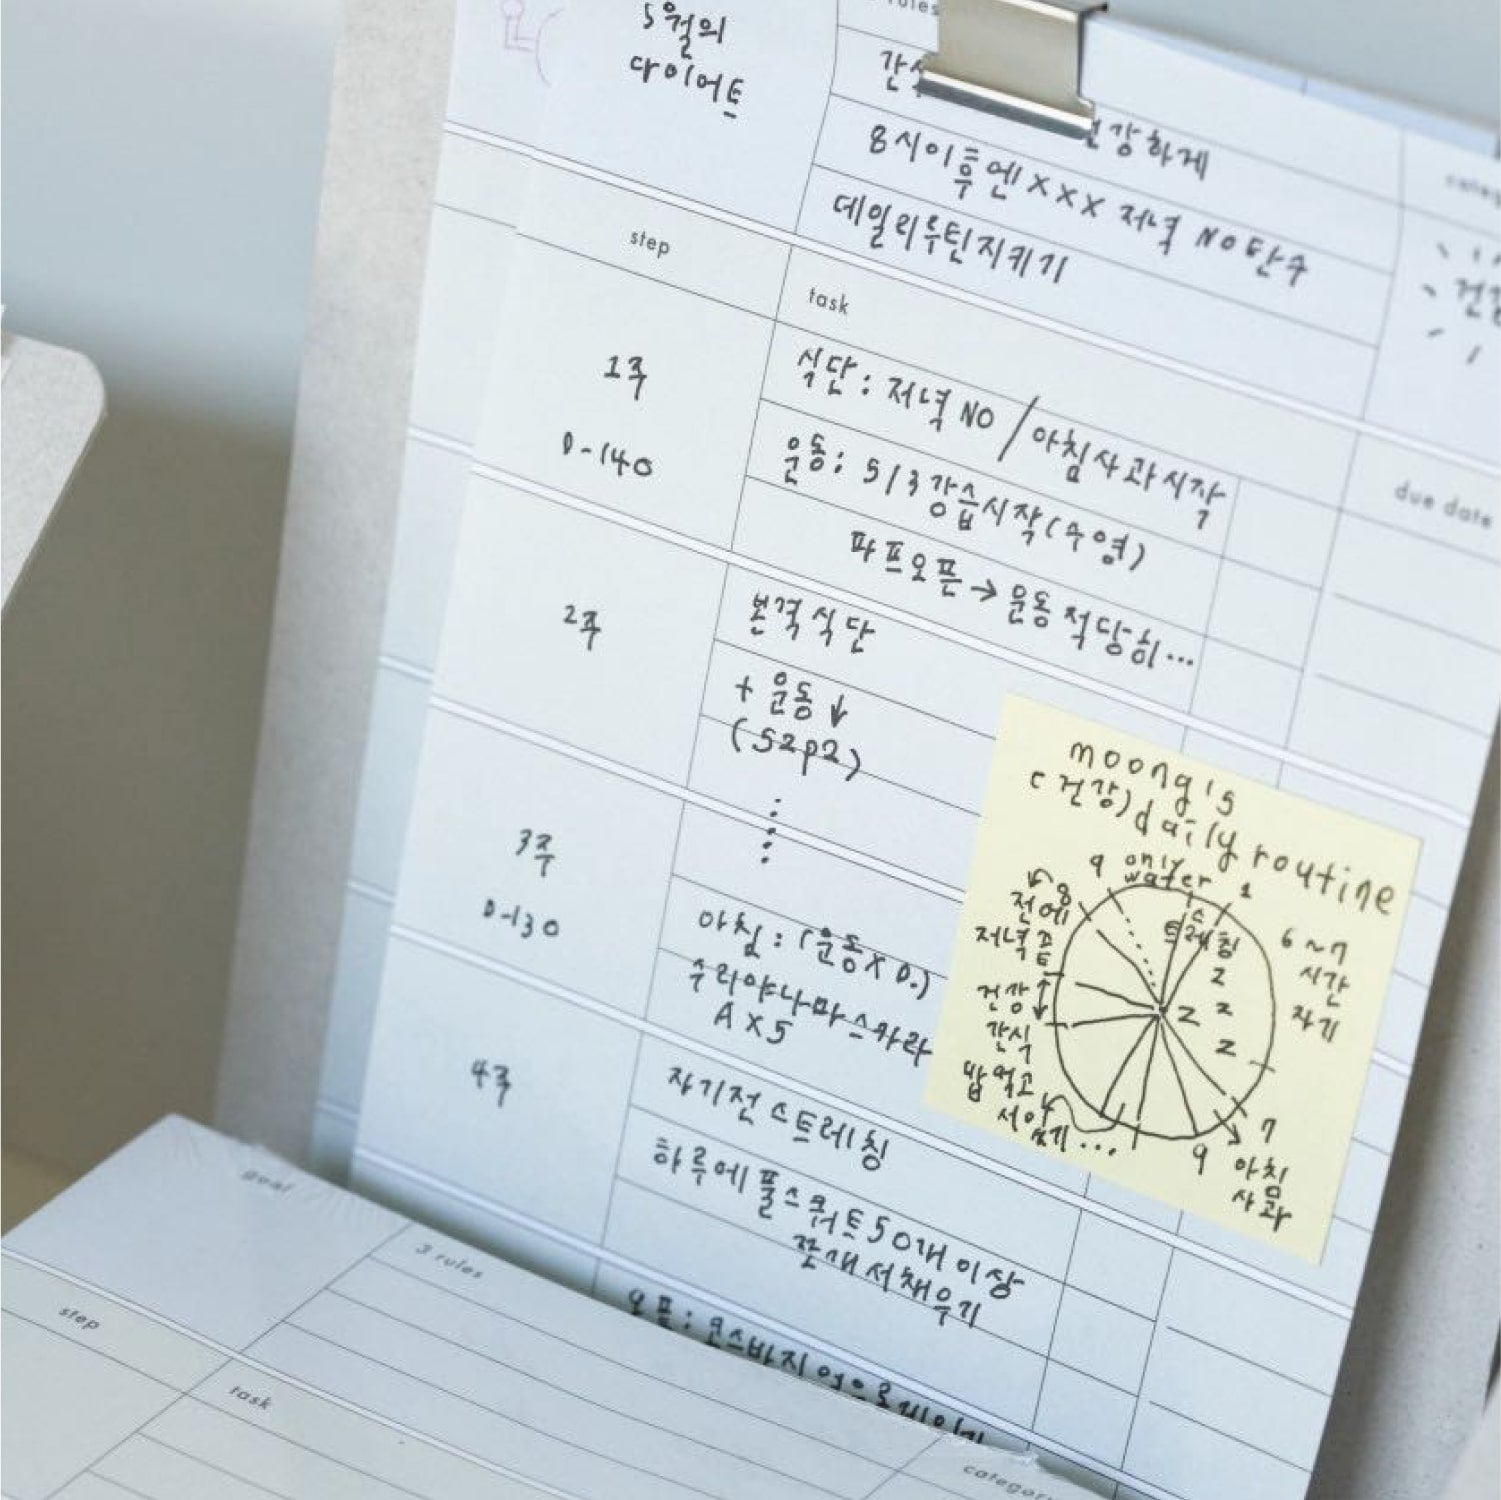 5월의
다이어트
rules
강하게
8시이후엔XXX 저녁 NO 탄수
데일리루틴지키기
건강
step
task
due date
1주
D-140
식단: 저녁 NO / 아침사과시작
운동: 5/3 강습시작(수영)
파프오픈→운동 적당히...
2주
본격식단
+ 운동↓
(S2P2)
3주
D-130
아침: (운동X D.)
수리야나마스카라
A X 5
4주
자기전 스트레칭
하루에 풀스쿼트 50개 이상
쪼개서채우기
moong's
(건강) daily routine
9 only water 1
8
전에
저녁
스트레칭
6~7
시간
자기
z
z
z
z
건강
간식
밥 먹고
7
9
아침
사과
goal
3 rules
step
task
category